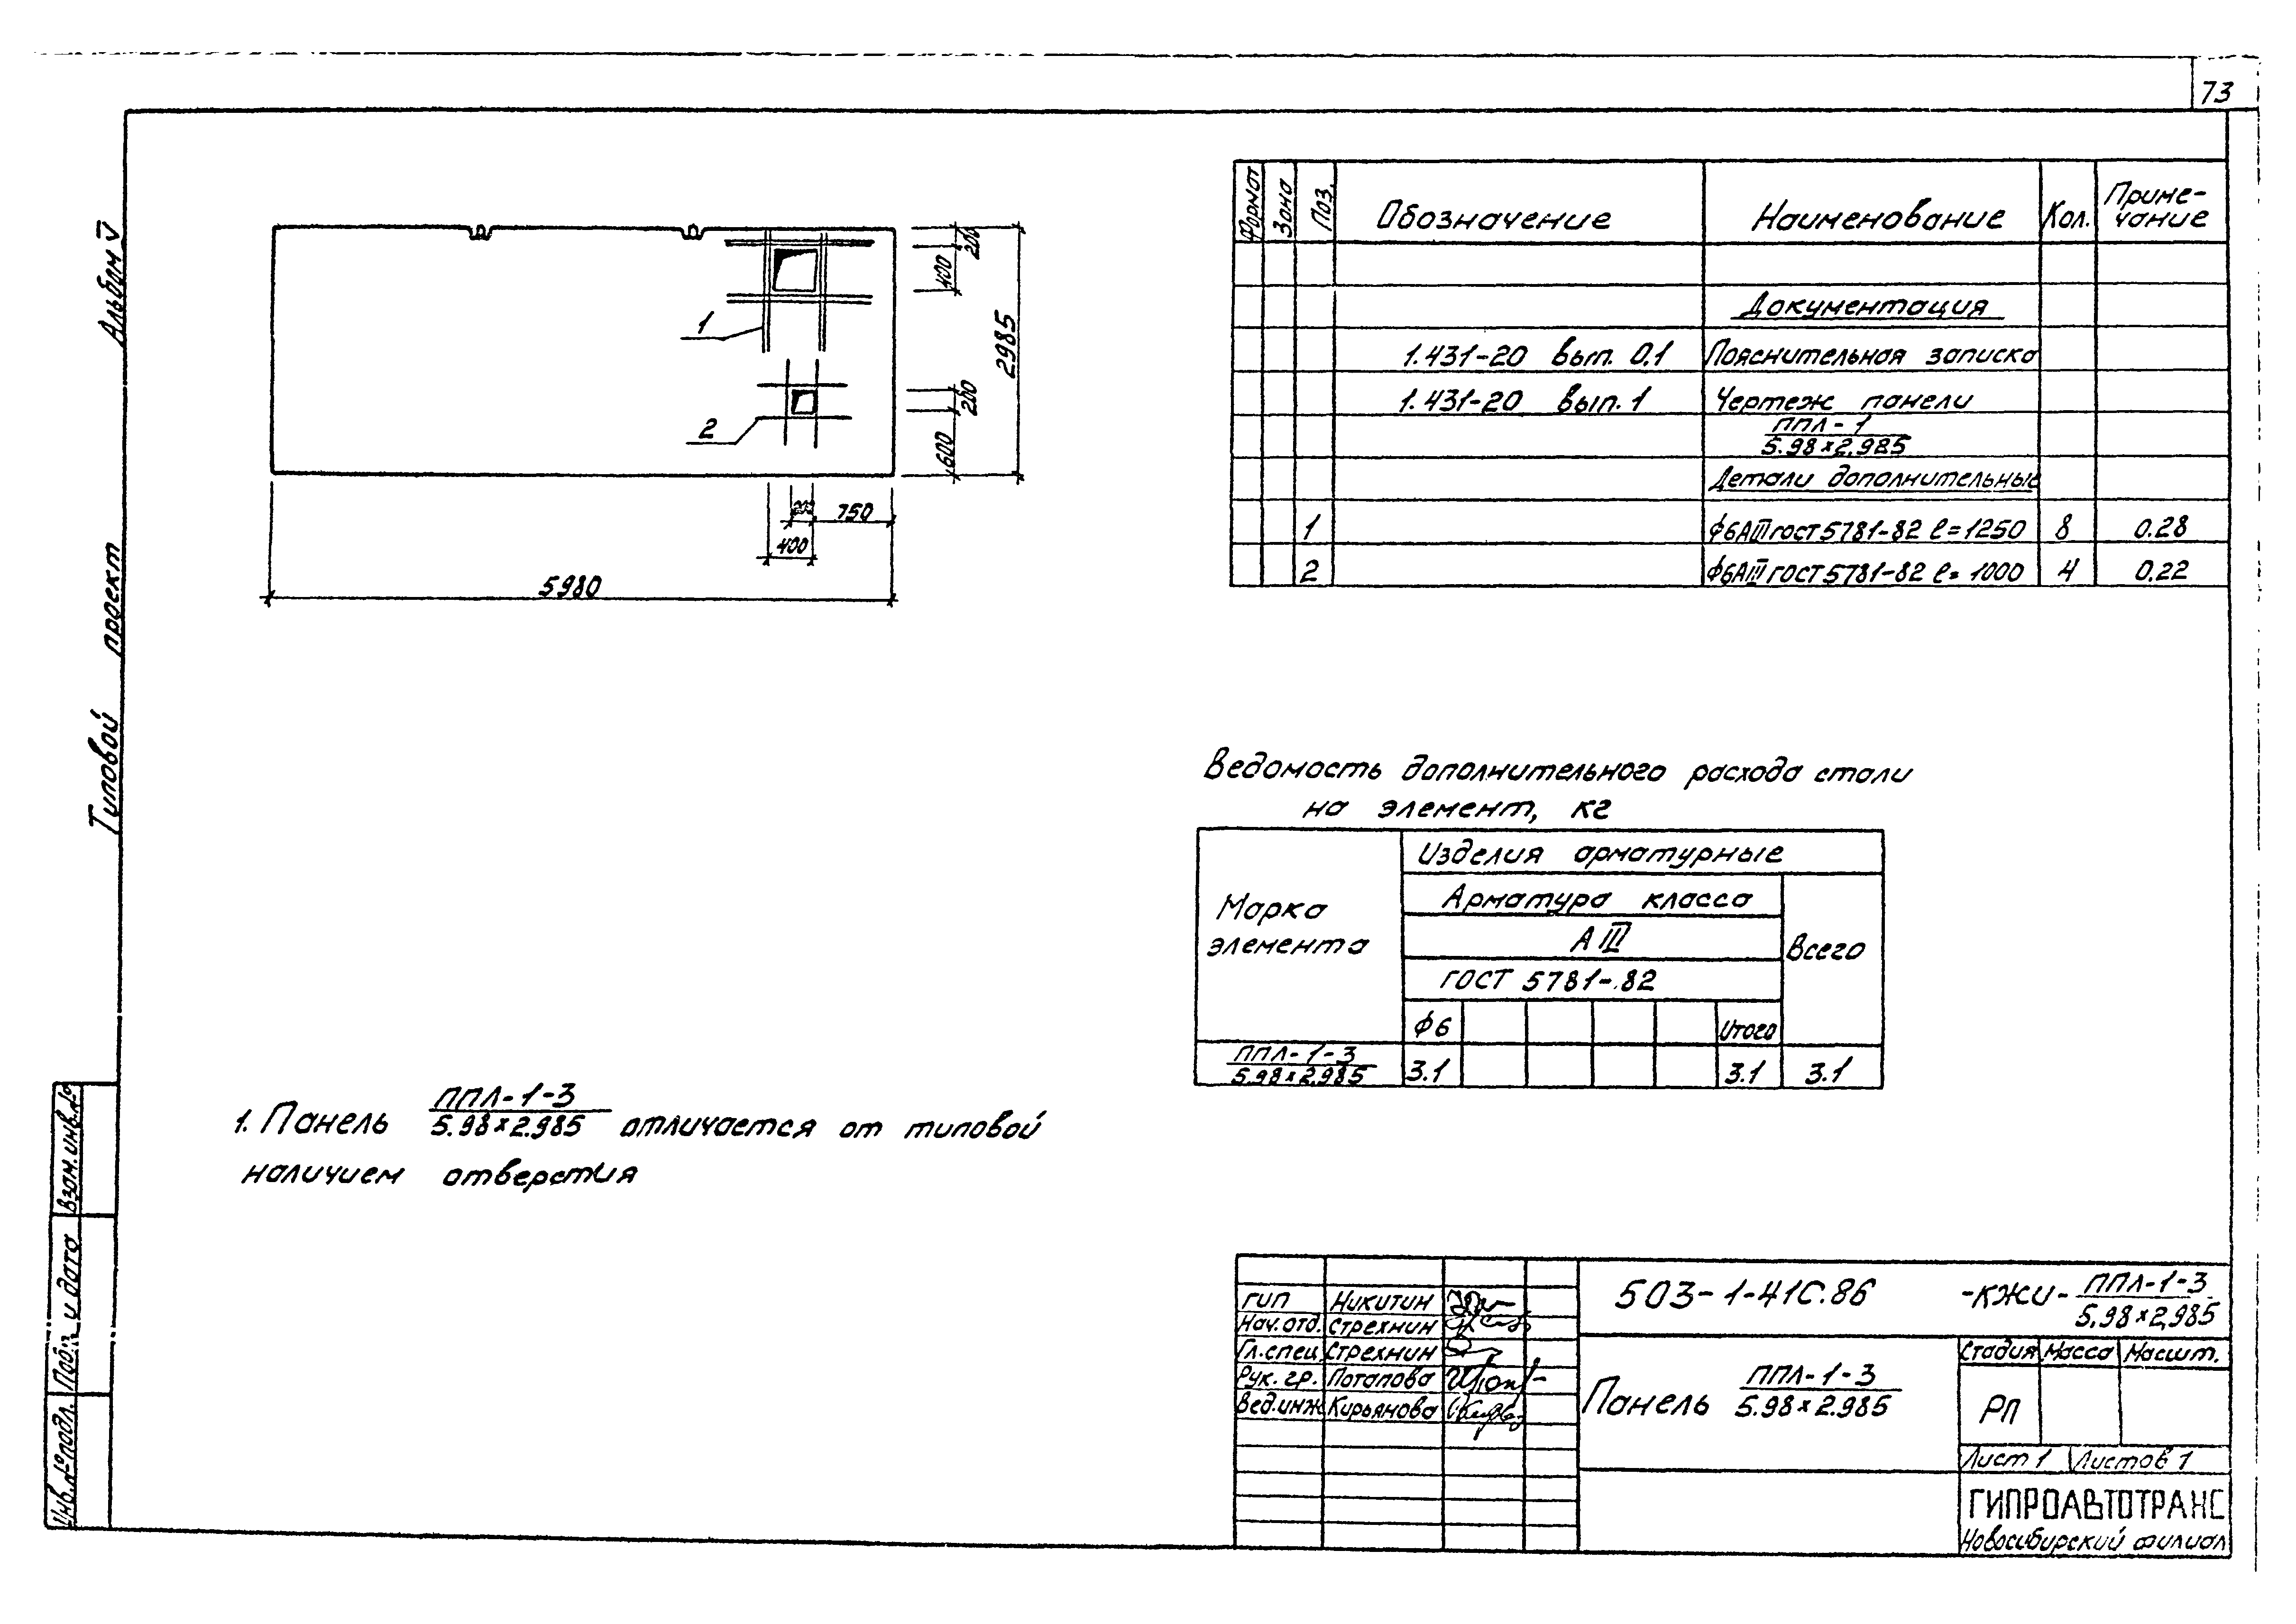 73
Альбом V
Типовой проект
Взам.инв.№
Подп. и дата
Инв.№подл.
1
2
200
400
2985
200
600
200
750
400
5980
Формат
Зона
Поз.
Обозначение
Наименование
Кол.
Приме-
чание
Документация
1.431-20 вып. 0.1 Пояснительная записка
1.431-20 вып. 1 Чертеж панели
ППЛ-1
5.98×2.985
Детали дополнительные
1 ф6АIII гост 5781-82 ℓ=1250 8 0.28
2 ф6АIII ГОСТ 5781-82 ℓ= 1000 4 0.22
Ведомость дополнительного расхода стали
на элемент, кг
Марка
элемента
Изделия арматурные
Арматура класса
А III
ГОСТ 5781-82
Всего
ф6 Итого
ППЛ-1-3
5.98×2.985
3.1 3.1 3.1
1. Панель ППЛ-1-3
5.98×2.985 отличается от типовой
наличием отверстия
ГИП Никитин
Нач.отд. Стрехнин
Гл.спец. Стрехнин
Рук. гр. Потапова
Вед.инж Кирьянова
503-1-41С.86 -КЖИ- ППЛ-1-3
5.98×2.985
Панель ППЛ-1-3
5.98×2.985
Стадия Масса Масшт.
РП
Лист 1 Листов 1
ГИПРОАВТОТРАНС
Новосибирский филиал